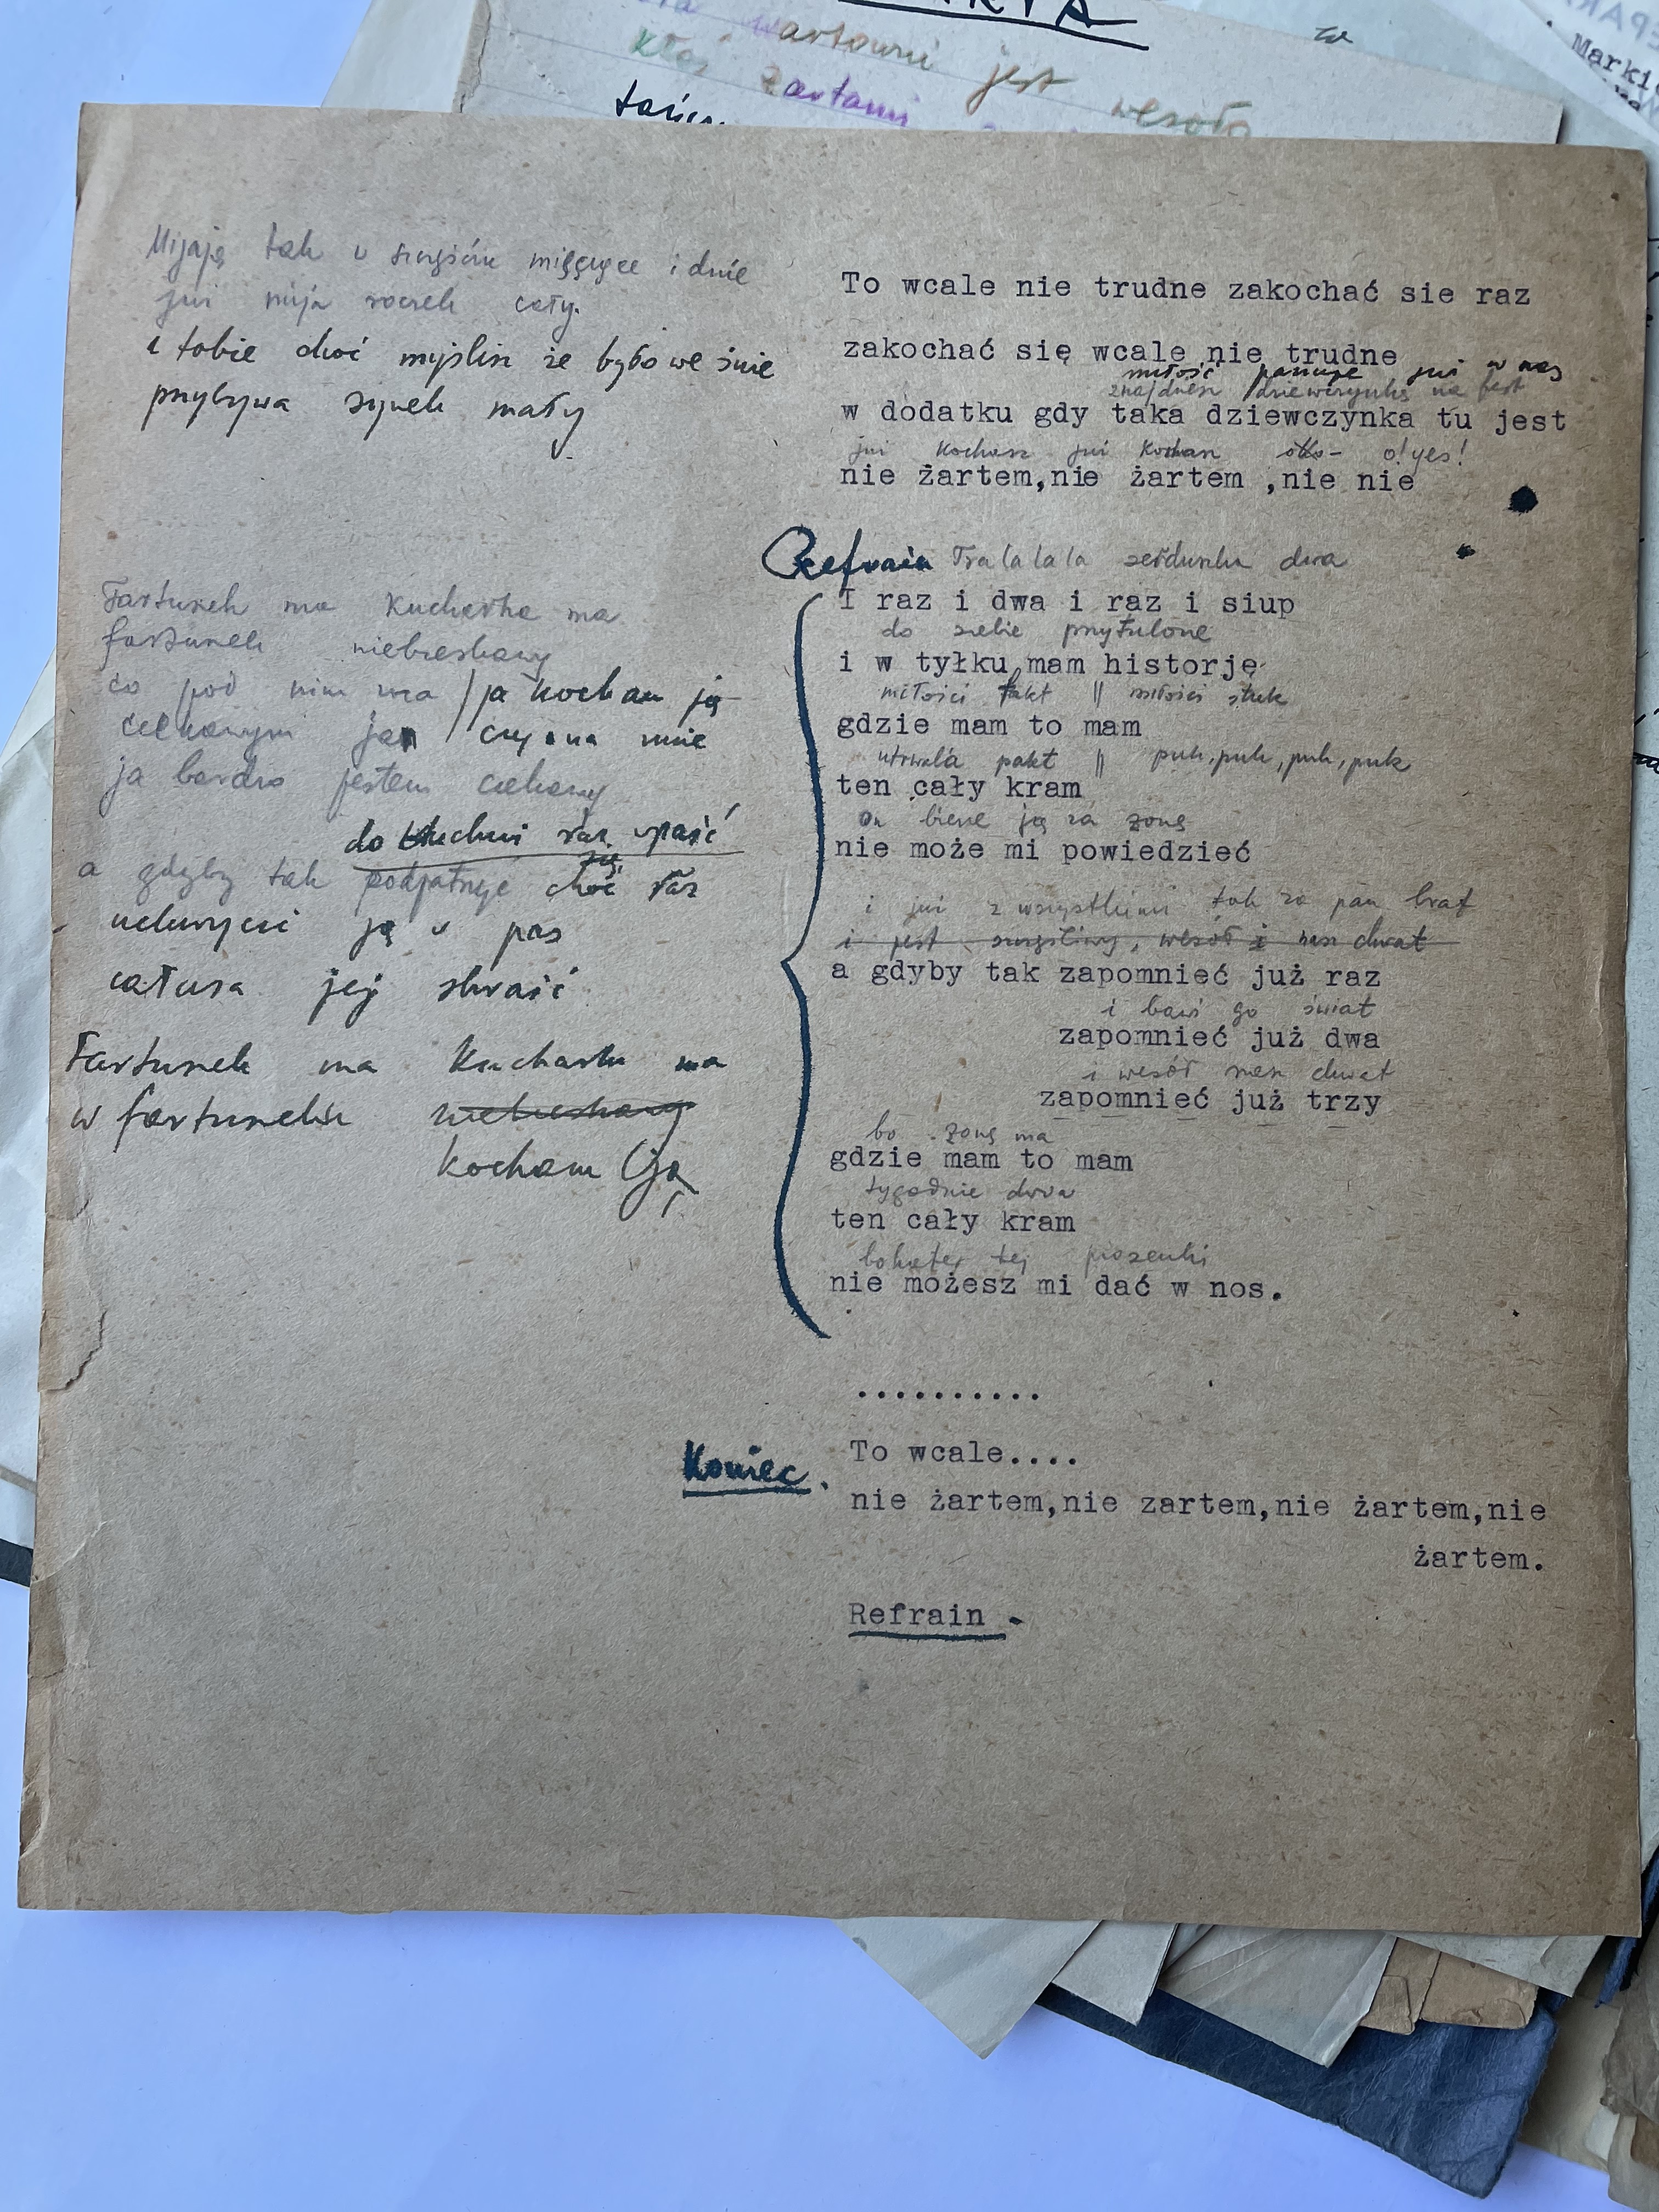 wartowni jest wesoło
ktoś żartami
Marki
Mijają tak w szczęściu miesiące i dnie
już mija roczek cały.
i tobie choć myślisz że było we śnie
przybywa synek mały
Fartuszek ma Kucharka ma
fartuszek niebieskawy
co pod nim ma / ja kocham ją
ciekawym jan / czy ona mnie
ja bardzo jestem ciekawy
do kuchni raz wpaść
a gdyby tak podpatrzyć choć raz
uchwycić ją w pas
całusa jej skraść
Fartuszek ma Kucharka ma
w fartuszeku niebieskawy
kocham (ją
To wcale nie trudne zakochać sie raz
zakochać się wcale nie trudne
miłość panuje już w nas
znajdziesz dziewczynkę na fest
w dodatku gdy taka dziewczynka tu jest
już kochasz już kochasz oko- o!yes!
nie żartem,nie żartem ,nie nie
Refrain Tralalala serduszka dwa
I raz i dwa i raz i siup
do siebie przytulone
i w tyłku mam historję
miłości takt || miłości stuk
gdzie mam to mam
utrwala pakt || puk,puk,puk,puk
ten cały kram
on bierze ją za żonę
nie może mi powiedzieć
i już z wszystkimi tak za pan brat
i jest szczęśliwy, wesół i zuch chwat
a gdyby tak zapomnieć już raz
i bawi go świat
zapomnieć już dwa
i wesół zuch chwat
zapomnieć już trzy
bo żonę ma
gdzie mam to mam
tygodnie dwa
ten cały kram
bohater tej piosenki
nie możesz mi dać w nos.
..........
Koniec. To wcale....
nie żartem,nie zartem,nie żartem,nie
żartem.
Refrain -